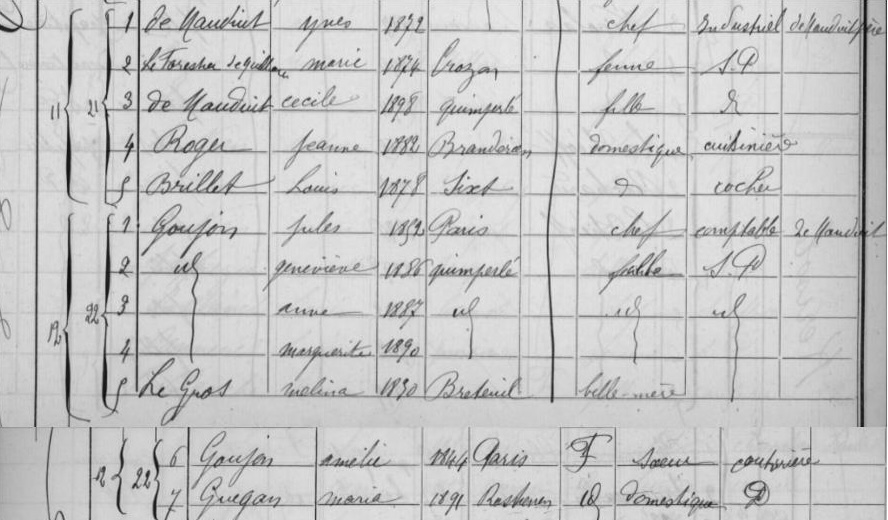 1 de Mauduit yves 1872 chef industriel de Mauduit père
2 Le Forestier de quillien marie 1874 Crozon femme S.P
11 21 3 de Mauduit cecile 1898 quimperlé fille d°
4 Roger jeanne 1882 Branderion domestique cuisinière
5 Brillet Louis 1878 Sixt d° cocher
1 Goujon jules 1852 Paris chef comptable de Mauduit
2 id geneviève 1886 quimperlé fille S.P
12 22 3 anne 1887 id id id
4 marguerite 1890
5 Le Gros melina 1830 Breteuil belle-mère
12 22 6 Goujon amélie 1844 Paris F soeur couturière
7 Guegan maria 1891 id domestique D